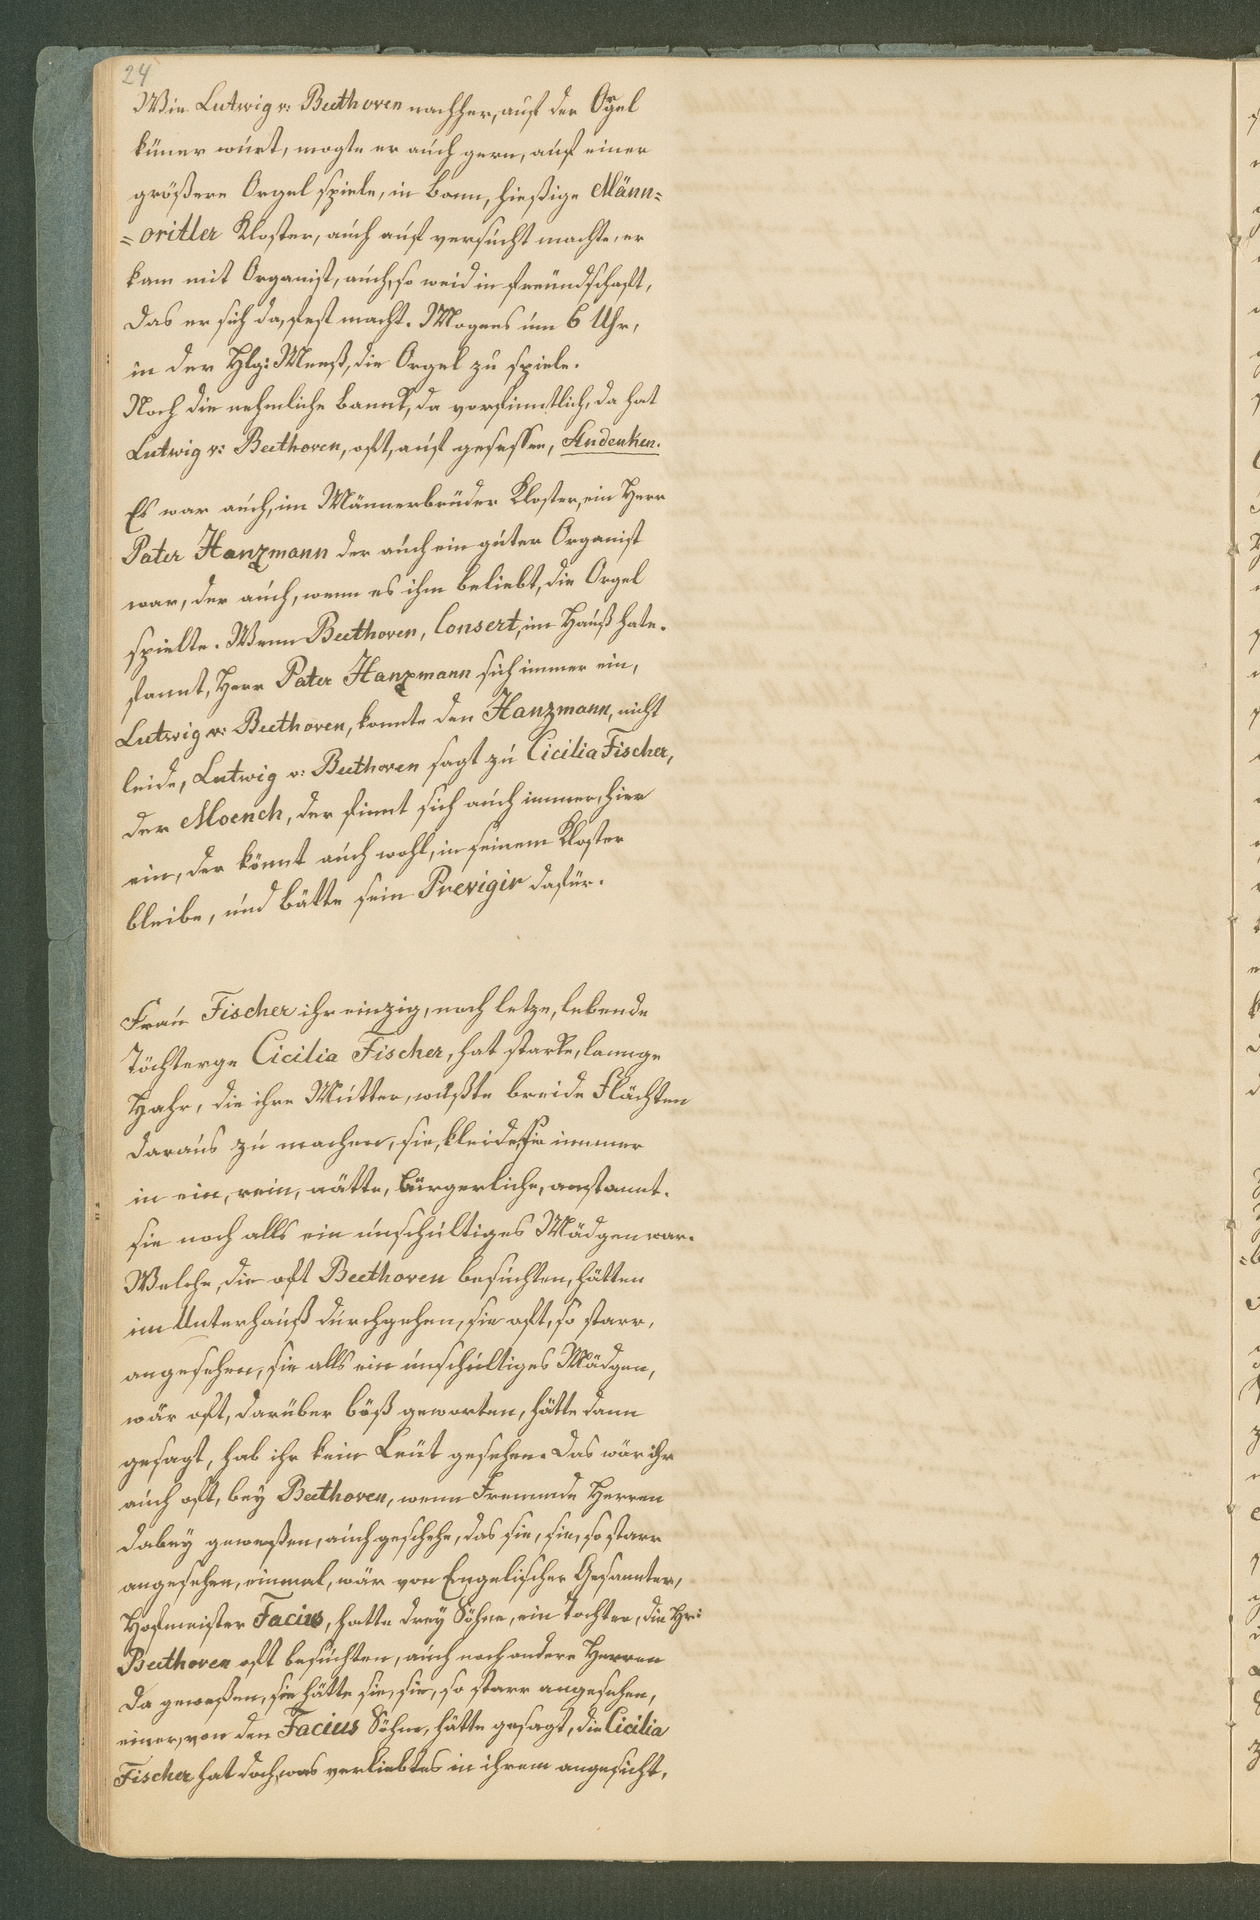 24
Wie Lutwig v: Beethoven nachher, auf der Orgel
küner wurt, mogte er auch gern, auf einer
größere Orgel spiele, in Bonn, hießige Männ=
=oritter Kloster, auch auf versucht machte, er
kam mit Organist, auch, so weid in freundschaft,
das er sich da, fest macht. Mogens um 6 Uhr,
in der Hlg: Meeß, die Orgel zu spiele.
Noch die nehmliche Banck, da vorfinntlich, da hat
Lutwig v: Beethoven, oft, auf gesessen, Andenken.
Es war auch, im Männerbrüder Kloster, ein Herr
Pater Hanzmann der auch ein guter Organist
war, der auch, wenn es ihm beliebt, die Orgel
spielte. Wenn Beethoven, Consert, im Hauß hate.
fannt, Herr Pater Hanzmann sich immer ein,
Lutwig v: Beethoven, konnte den Hanzmann, nicht
leide, Lutwig v: Beethoven sagt zu Cicilia Fischer,
der Moench, der finnt sich auch immer, hier
ein, der könnt auch wohl, in seinem Kloster
bleibe, und bätte sein Previgir dafür.
Frau Fischer ihr einzig, noch letze, lebende
Töchterge Cicilia Fischer, hat starke, lannge
Hahr, die ihre Mutter, wußte breide Flächten
daraus zu machen, sie, kleide, sie immer
in ein, rein, nätte, bürgerliche, anstannt.
sie noch alls ein unschultiges Mädgen war.
Welche, die oft Beethoven besuchten, hätten
im Unterhauß durchgehen, sie oft, so starr,
angesehen, sie alls ein unschultiges Mädgen,
wär oft, darüber böß geworten, hätte dann
gesagt, hab ihr kein Leüt gesehen. Das wär ihr
auch oft, bey Beethoven, wenn Fremmde Herren
dabey geweßen, auch geschehe, das sie, sie, so starr
angesehen, einmal, wär von Engelischer Gesannter,
Hofmeister Facius, hatte drey Söhne, ein Tochter, die Hr:
Beethoven oft besuchten, auch noch andere Herren
da geweßen, sie hätte sie, sie, so starr angesehen,
einer, von den Facius Söhne, hätte gesagt, die Cicilia
Fischer hat doch, was verliebtes in ihrem angesicht,